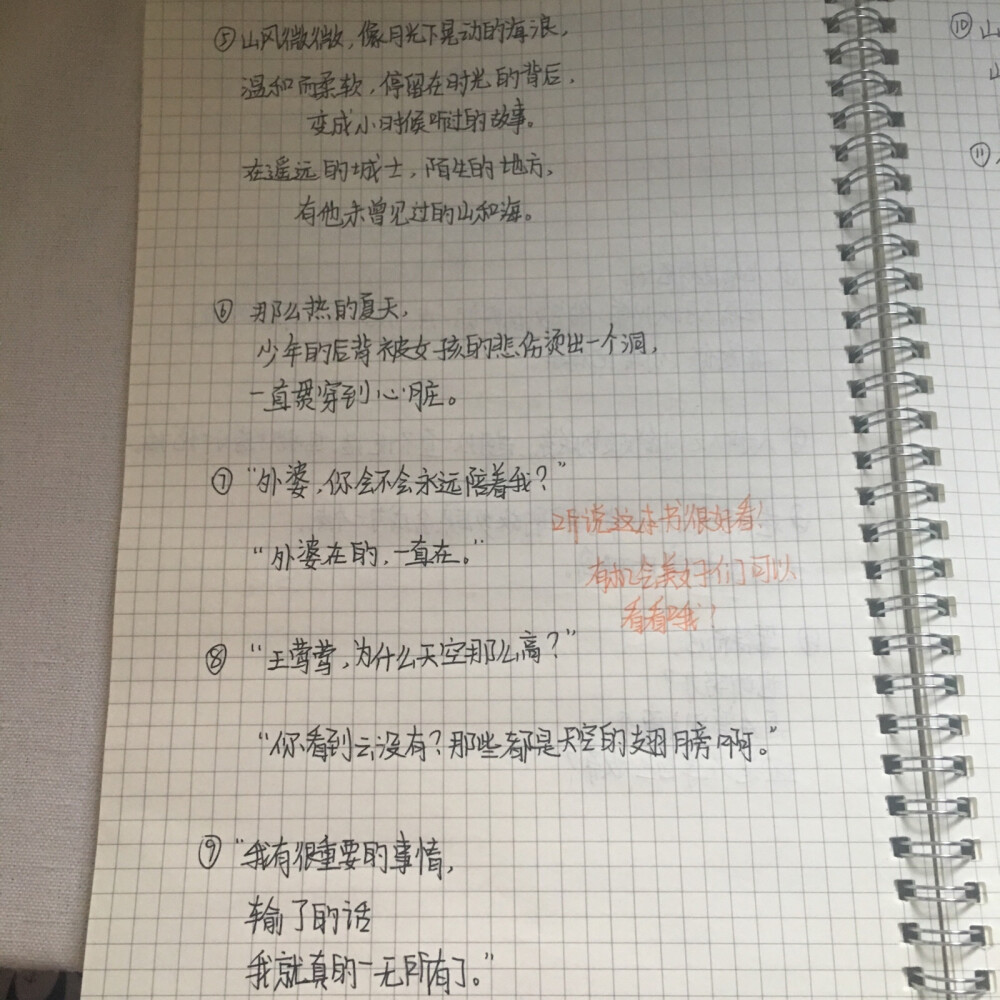 ⑤山风微微，像月光下晃动的海浪，
温和而柔软，停留在时光的背后，
变成小时候听过的故事。
在遥远的城士，陌生的地方，
有他未曾见过的山和海。
⑥ 那么热的夏天，
少年的后背被女孩的悲伤烫出一个洞，
一直贯穿到心脏。
⑦ “外婆，你会不会永远陪着我？”
“外婆在的，一直在。”
听说这本书很好看！
有机会美女子们可以
看看哦！
⑧ “王莺莺，为什么天空那么高？”
“你看到云没有？那些都是天空的翅膀啊。”
⑨ “我有很重要的事情，
输了的话
我就真的一无所有了。”
⑩ 山
⑪